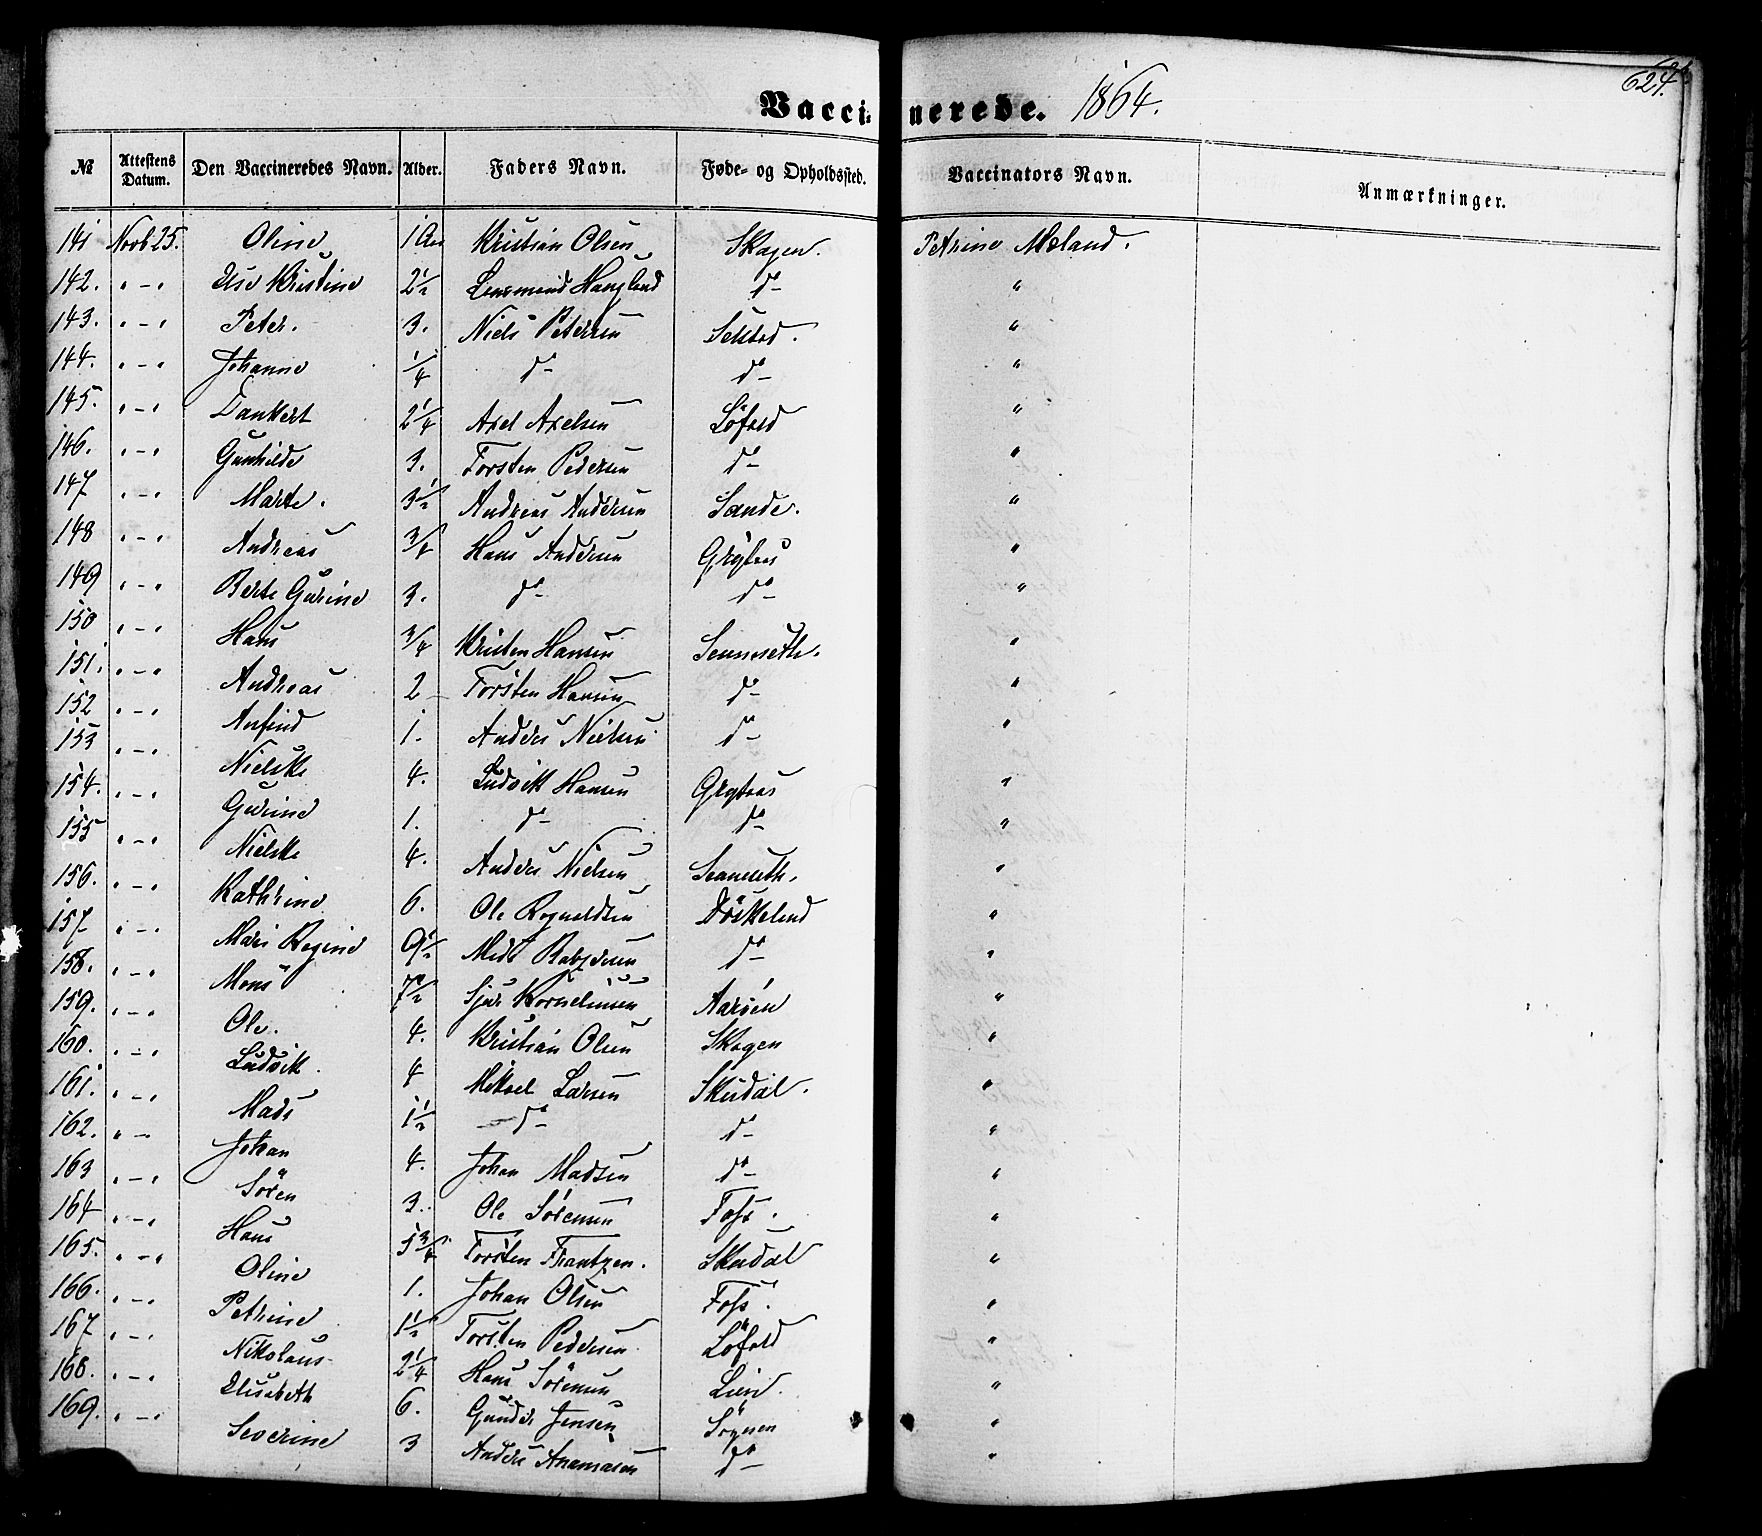 Vaccinerede. 1864.
624.
№ Attestens Datum. Den Vaccineredes Navn. Alder. Faders Navn. Føde- og Opholdssted. Vaccinators Navn. Anmærkninger.
141 Novb 25. Oline 1 Aar Kristian Olsen Skagen. Petrine Mæland.
142. " - " Else Kristine 2½ Lensmand Haugland d° - "
143. " - " Peter. 3. Niels Petersen Selstad. "
144. " - " Johanne ¼ d° - d° - "
145. " - " Dankert 2¼ Axel Axelsen Löfald "
146. " - " Gunhilde 3. Torsten Pedersen d° - "
147 " - " Marte. 3½ Andreas Andersen Sande. "
148 " - " Andreas ¾ Hans Andersen Grytaas "
149 " - " Berte Gurine 3. d° - d° - "
150 " - " Hans ¾ Kristen Hansen "
151. " - " Andreas 2 Torsten Hansen d° - "
152 " - " Anfind 1. Anders Nielsen d° - "
153 " - " Nielske 4. Ludvik Hansen Grytaas "
154. " - " Gurine 1. d° - d° - "
155 " - " Nielske 4. Anders Nielsen "
156. " - " Kathrine 6. Ole Rognaldsen Döskeland "
157 " - " Mari Regine 9½ Mads d° - "
158. " - " Mons 7½ Sjur Korneliusen Aaröen "
159. " - " Ole. 4. Kristian Olsen Skagen "
160. " - " Ludvik. 4 Mikael Larsen Skudal. "
161. " - " Mads 1½ d° - d° - "
162. " - Johan 4. Johan Madsen d° - "
163 " - " Sören 3. Ole Sörensen Foss. "
164 " - " Hans 5¾ Torsten Frantzen. Skudal "
165. " - " Oline 1. Johan Olsen Foss. "
166. " - " Petrine 1½ Torsten Pedersen Löfald "
167 " - " Nikolaus 2¼ Hans Sörensen Lien. "
168. " - " Elisabeth 6. Gunder Jensen Sögnen "
169. " - " Severine 3 Anders Anamasen d° - "